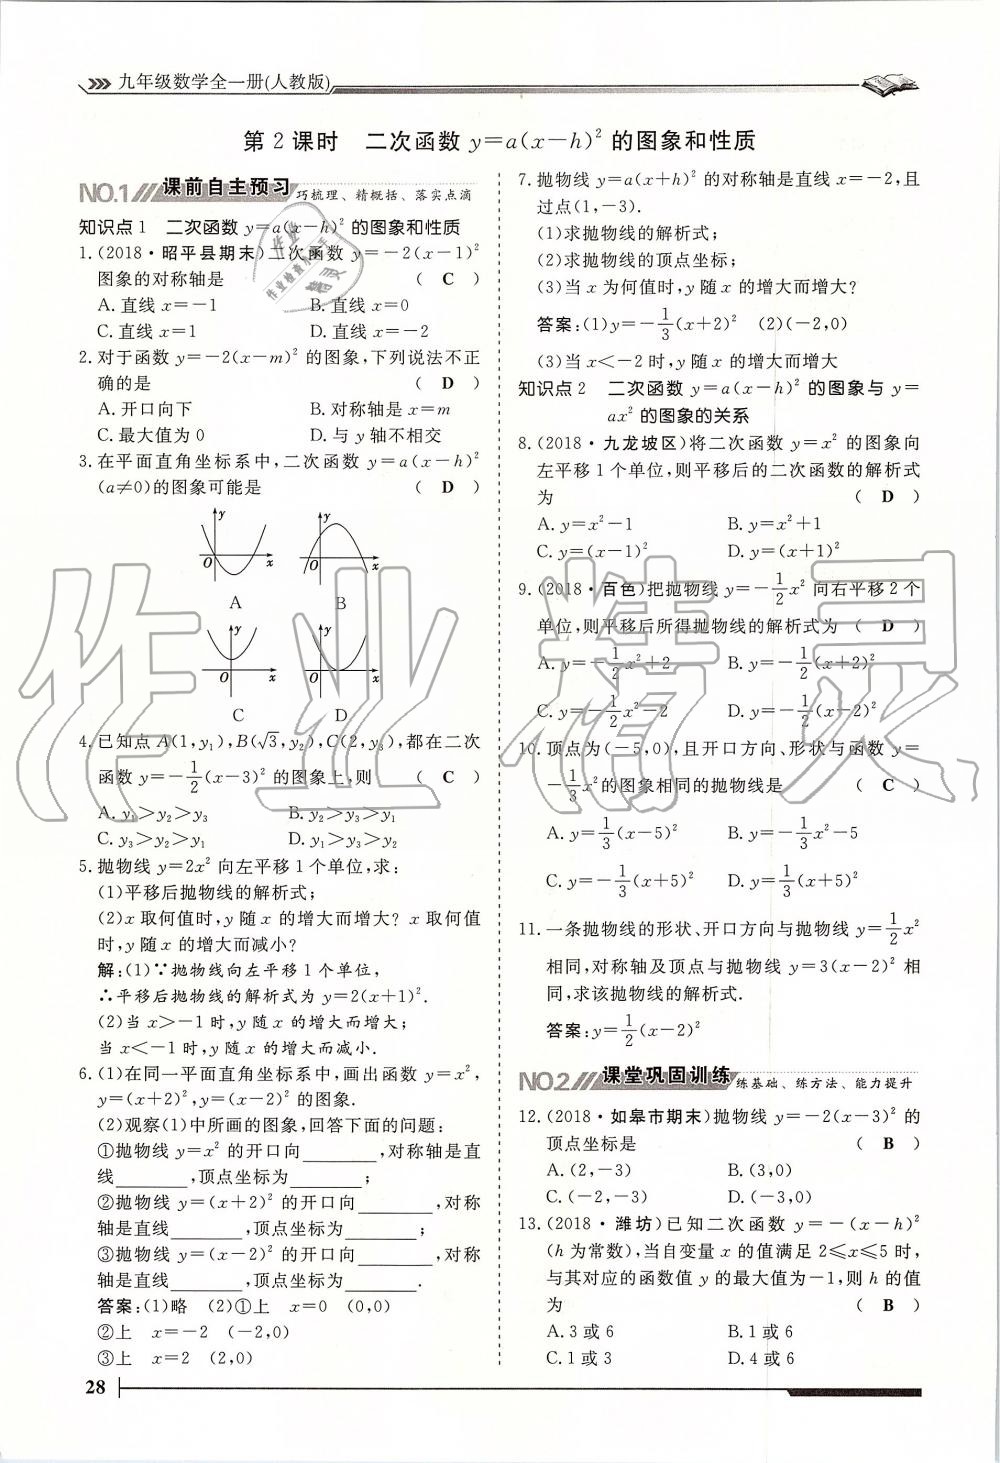 九年级数学全一册(人教版)
第2课时 二次函数 y=a(x-h)² 的图象和性质
NO.1 课前自主预习 巧梳理、精概括、落实点滴
知识点1 二次函数 y=a(x-h)² 的图象和性质
1.(2018·昭平县期末)二次函数 y=-2(x-1)²
图象的对称轴是 ( C )
A.直线 x=-1 B.直线 x=0
C.直线 x=1 D.直线 x=-2
2.对于函数 y=-2(x-m)² 的图象,下列说法不正
确的是 ( D )
A.开口向下 B.对称轴是 x=m
C.最大值为 0 D.与 y 轴不相交
3.在平面直角坐标系中,二次函数 y=a(x-h)²
(a≠0)的图象可能是 ( D )
y y
O x O x
A B
y y
O x O x
C D
4.已知点 A(1,y₁),B(√3,y₂),C(2,y₃),都在二次
函数 y=-1/2(x-3)² 的图象上,则 ( C )
A.y₁>y₂>y₃ B.y₂>y₃>y₁
C.y₃>y₂>y₁ D.y₁>y₃>y₂
5.抛物线 y=2x² 向左平移 1 个单位,求:
(1)平移后抛物线的解析式;
(2)x 取何值时,y 随 x 的增大而增大? x 取何值
时,y 随 x 的增大而减小?
解:(1)∵抛物线向左平移 1 个单位,
∴平移后抛物线的解析式为 y=2(x+1)².
(2)当 x>-1 时,y 随 x 的增大而增大;
当 x<-1 时,y 随 x 的增大而减小.
6.(1)在同一平面直角坐标系中,画出函数 y=x²,
y=(x+2)²,y=(x-2)² 的图象.
(2)观察(1)中所画的图象,回答下面的问题:
①抛物线 y=x² 的开口向________,对称轴是直
线________,顶点坐标为________;
②抛物线 y=(x+2)² 的开口向________,对称
轴是直线________,顶点坐标为________;
③抛物线 y=(x-2)² 的开口向________,对称
轴是直线________,顶点坐标为________.
答案:(1)略 (2)①上 x=0 (0,0)
②上 x=-2 (-2,0)
③上 x=2 (2,0)
7.抛物线 y=a(x+h)² 的对称轴是直线 x=-2,且
过点(1,-3).
(1)求抛物线的解析式;
(2)求抛物线的顶点坐标;
(3)当 x 为何值时,y 随 x 的增大而增大?
答案:(1)y=-1/3(x+2)² (2)(-2,0)
(3)当 x<-2 时,y 随 x 的增大而增大
知识点2 二次函数 y=a(x-h)² 的图象与 y=
ax² 的图象的关系
8.(2018·九龙坡区)将二次函数 y=x² 的图象向
左平移 1 个单位,则平移后的二次函数的解析式
为 ( D )
A.y=x²-1 B.y=x²+1
C.y=(x-1)² D.y=(x+1)²
9.(2018·百色)把抛物线 y=-1/2x² 向右平移 2 个
单位,则平移后所得抛物线的解析式为 ( D )
A.y=-1/2x²+2 B.y=-1/2(x+2)²
C.y=-1/2x²-2 D.y=-1/2(x-2)²
10.顶点为(-5,0),且开口方向、形状与函数 y=
-1/3x²的图象相同的抛物线是 ( C )
A.y=1/3(x-5)² B.y=-1/3x²-5
C.y=-1/3(x+5)² D.y=1/3(x+5)²
11.一条抛物线的形状、开口方向与抛物线 y=1/2x²
相同,对称轴及顶点与抛物线 y=3(x-2)² 相
同,求该抛物线的解析式.
答案:y=1/2(x-2)²
NO.2 课堂巩固训练 练基础、练方法、能力提升
12.(2018·如皋市期末)抛物线 y=-2(x-3)² 的
顶点坐标是 ( B )
A.(2,-3) B.(3,0)
C.(-2,-3) D.(-3,0)
13.(2018·潍坊)已知二次函数 y=-(x-h)²
(h 为常数),当自变量 x 的值满足 2≤x≤5 时,
与其对应的函数值 y 的最大值为-1,则 h 的值
为 ( B )
A.3 或 6 B.1 或 6
C.1 或 3 D.4 或 6
28
作业精灵